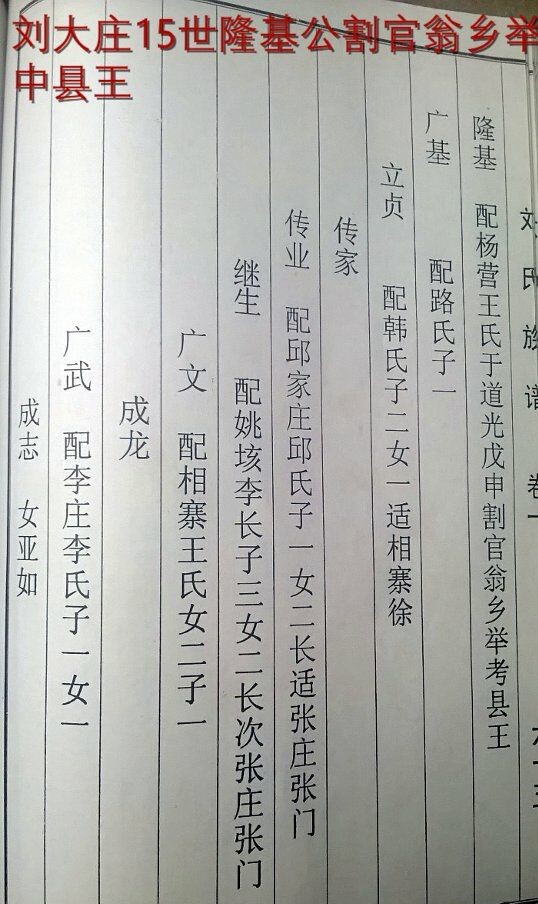 刘大庄15世隆基公割官翁乡举
中县王
刘氏族谱 卷一
隆基 配杨营王氏于道光戊申割官翁乡举考县王
广基 配路氏子一
立贞 配韩氏子二女一适相寨徐
传家
传业 配邱家庄邱氏子一女二长适张庄张门
继生 配姚垓李长子三女二长次张庄张门
广文 配相寨王氏女二子一
成龙
广武 配李庄李氏子一女一
成志 女亚如